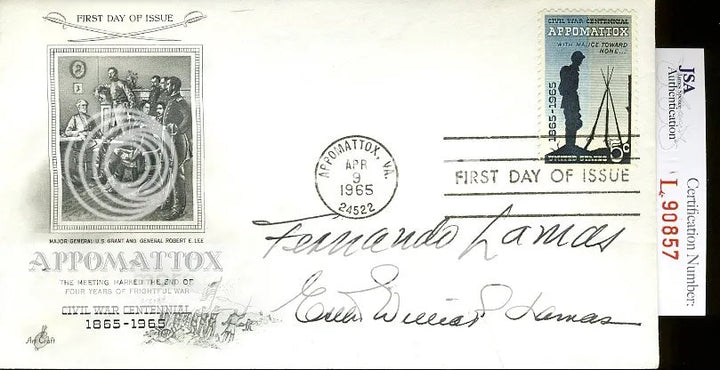 FIRST DAY OF ISSUE
MAJOR GENERAL U.S. GRANT AND GENERAL ROBERT E. LEE
APPOMATTOX
THE MEETING MARKED THE END OF
FOUR YEARS OF FRIGHTFUL WAR
CIVIL WAR CENTENNIAL
1865-1965
Art Craft
APPOMATTOX, VA.
APR
9
1965
24522
CIVIL WAR CENTENNIAL
APPOMATTOX
"WITH MALICE TOWARD
NONE..."
1865-1965
UNITED STATES
5c
FIRST DAY OF ISSUE
Fernando Lamas
Esther Williams Lamas
JSA
James Spence
Authentication
Certification Number:
L 90857